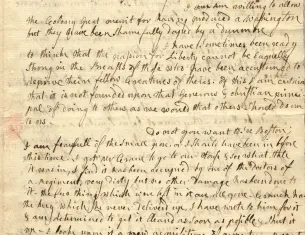 I own am willing to allow
the Colony great merrit for having produced a Washington
but they have been shamefully duped by a Dunmore.
I have sometimes been ready
to think that the passion for Liberty cannot be Eaquelly
strong in the Breasts of those who have been accustomed to
deprive their fellow Creatures of theirs. Of this I am certain
that it is not founded upon that generous & christian princi
pal of doing to others as we would that others should do un
to us.
Do not you want to see Boston;
I am fearfull of the small pox, or I should have been in before
this time. I got mr Crane to go to our House and see what state
it was in. I find it has been occupied by one of the Doctors of
a Regiment, very dirty but no other Damage has been done to
it. the few things which were left in it are all gone.
the key which he never deliverd up, I have wrote to him for it
& am determined to get it cleand as soon as possible & shut it
up. I look upon it a new acquisition of